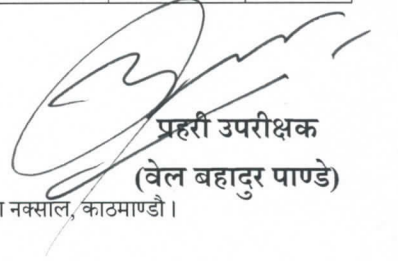 प्रहरी उपरीक्षक
(वेल बहादुर पाण्डे)
नक्साल, काठमाण्डौ।